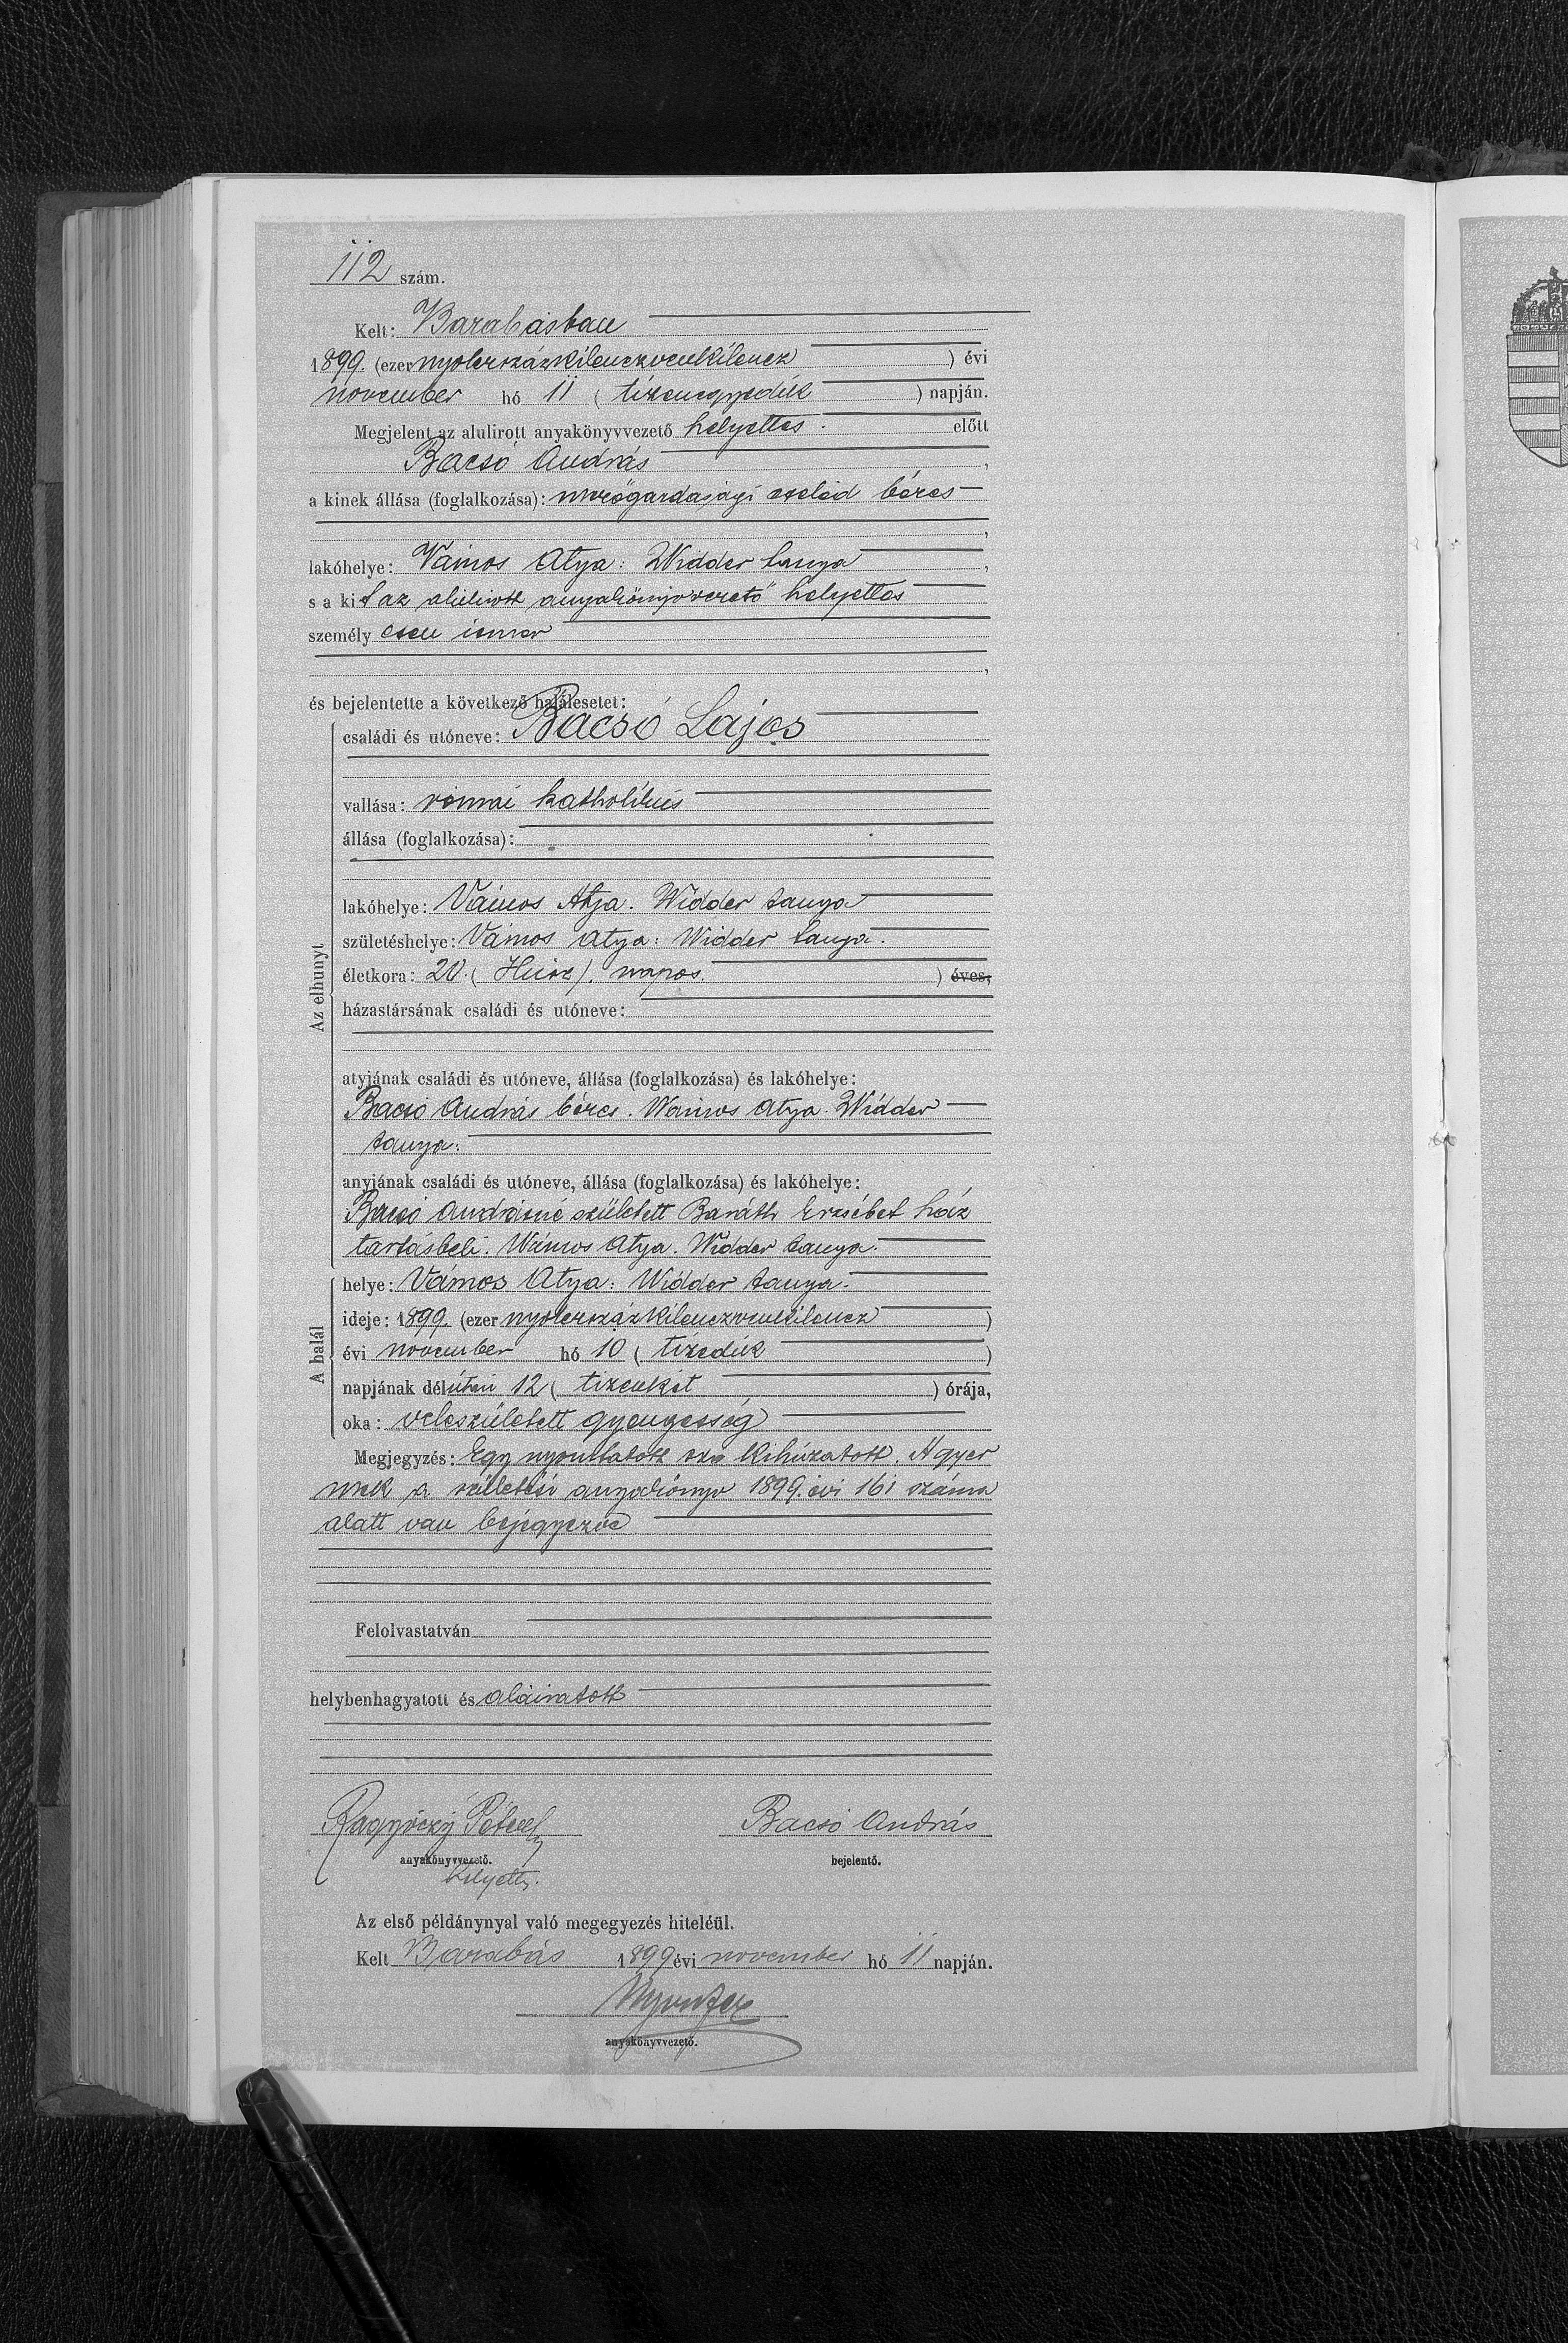 112 szám.
Kelt: Barabásban
1899. (ezernyolczszázkilenczvenkilencz) évi
november hó 11 (tizenegyedik) napján.
Megjelent az alulirott anyakönyvvezető helyettes előtt
Bacsó András,
a kinek állása (foglalkozása): mezőgazdasági cseléd béres
,
lakóhelye: Vámos Atya: Widder tanya,
s a kit az alulirott anyakönyvvezető helyettes
személyesen ismer
,
és bejelentette a következő halálesetet:
Az elhunyt
családi és utóneve: Bacsó Lajos
vallása: római katholikus
állása (foglalkozása):
lakóhelye: Vámos Atya. Widder tanya
születéshelye: Vámos Atya: Widder tanya.
életkora: 20. (Húsz). napos. ) éves,
házastársának családi és utóneve:
atyjának családi és utóneve, állása (foglalkozása) és lakóhelye:
Bacsó András béres. Vámos Atya. Widder
tanya.
anyjának családi és utóneve, állása (foglalkozása) és lakóhelye:
Bacsó Andrásné született Baráth Erzsébet ház
tartásbeli. Vámos Atya. Widder tanya.
A halál
helye: Vámos Atya: Widder tanya.
ideje: 1899. (ezernyolczszázkilenczvenkilencz)
évi november hó 10 (tizedik)
napjának délutáni 12 (tizenkét) órája,
oka: veleszületett gyengeség
Megjegyzés: Egy nyomtatott szó kihúzatott. A gyer
mek a születési anyakönyv 1899. évi 161 száma
alatt van bejegyezve
Felolvastatván
helybenhagyatott és aláiratott
Bacsó András
anyakönyvvezető. bejelentő.
helyettes.
Az első példánynyal való megegyezés hiteléül.
Kelt Barabás 1899 évi november hó 11 napján.
anyakönyvvezető.